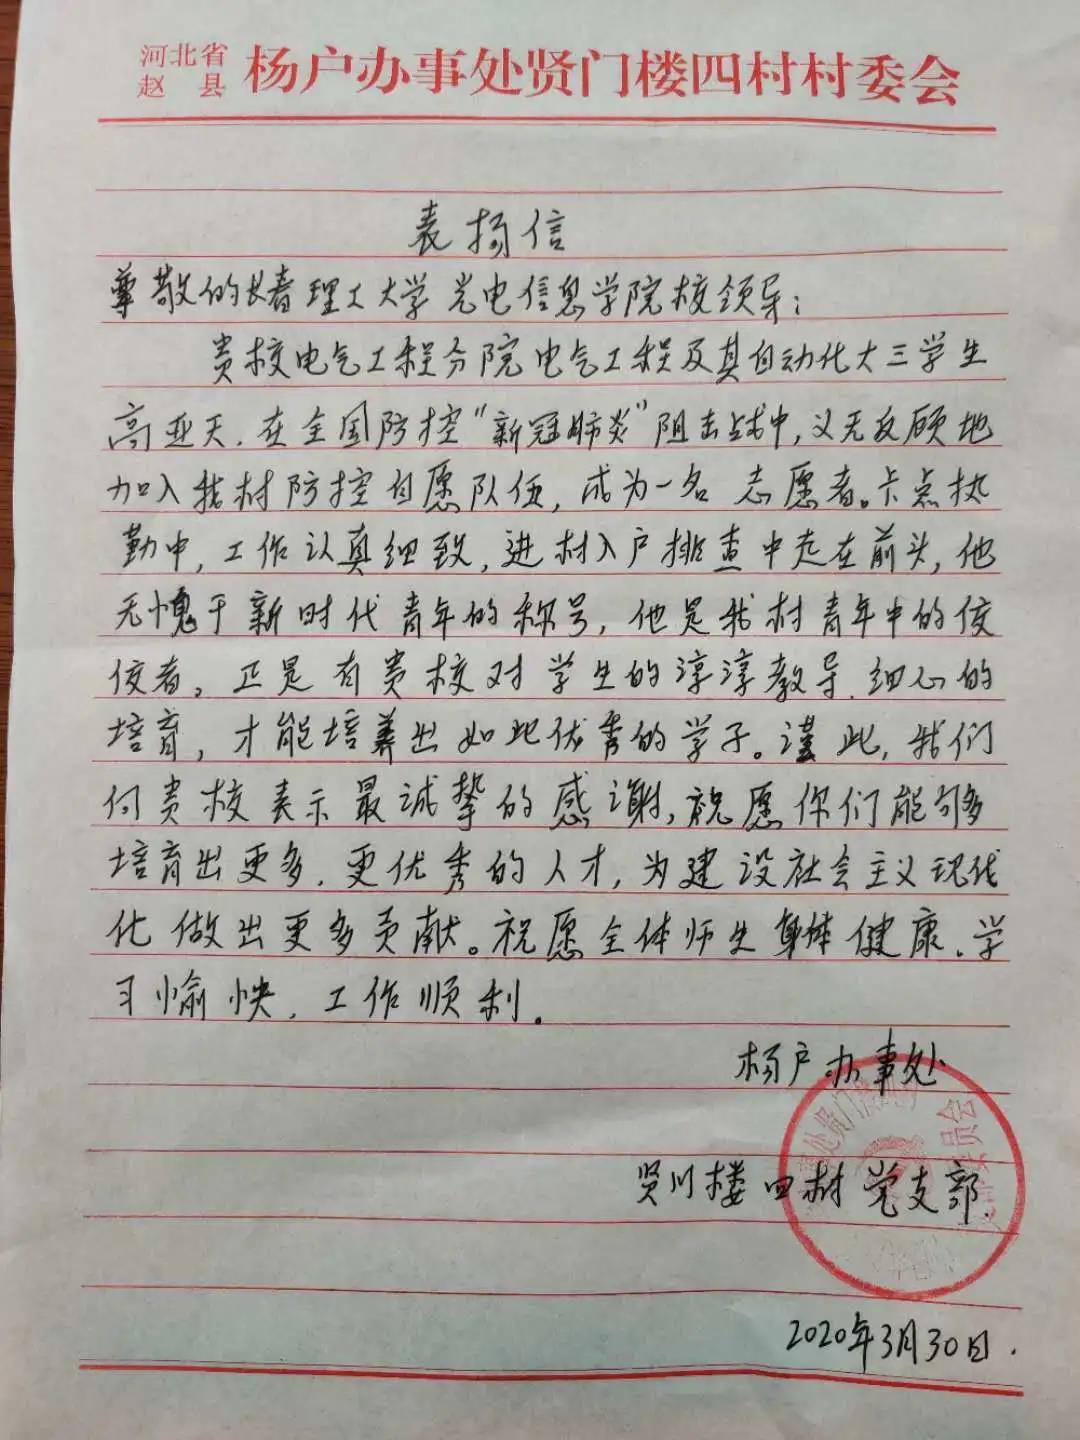 河北省
赵县
杨户办事处贤门楼四村村委会
表扬信
尊敬的长春理工大学光电信息学院校领导：
贵校电气工程分院电气工程及其自动化大三学生
高亚天.在全国防控“新冠肺炎”阻击战中,义无反顾地
加入我村防控自愿队伍,成为一名志愿者。卡点执
勤中,工作认真细致,进村入户排查中走在前头,他
无愧于新时代青年的称号,他是我村青年中的佼
佼者。正是有贵校对学生的淳淳教导.细心的
培育,才能培养出如此优秀的学子。谨此,我们
向贵校表示最诚挚的感谢,祝愿你们能够多
培育出更多.更优秀的人才,为建设社会主义现代
化做出更多贡献。祝愿全体师生身体健康.学
习愉快.工作顺利。
杨户办事处
贤门楼四村党支部.
处贤门
员会
2020年3月30日.